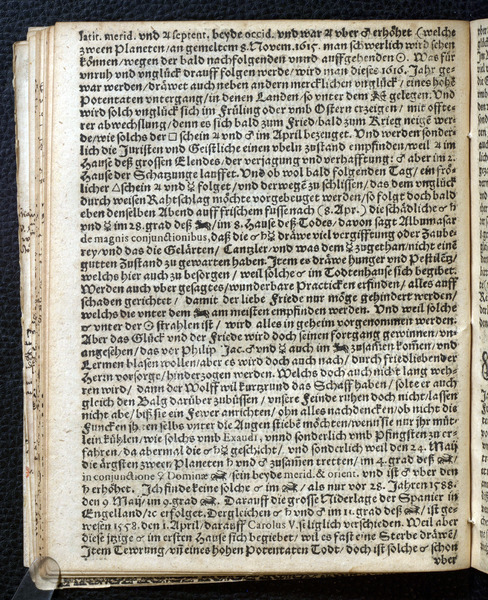 latit. merid. vnd ♃ septent. beyde occid. vnd war ♃ vber ♂ erhöhet (welche
zween Planeten/ an gemeltem 8. Novem. 1615. man schwerlich wird sehen
können/ wegen der bald nachfolgenden vnnd auffgehenden ☉. Was für
vnruh vnd vnglück drauff folgen werde/ wird man dieses 1616. Jahr ge-
war werden/ dräwet auch neben andern mercklichen vnglück/ eines hohē
Potentaten vntergang/ in denen Landen/ so vnter dem gelegen. Vnd
wird solch vnglück sich im Früling oder vmb Ostern erzeigen/ mit öffte-
rer abwechslung/ denn es sich bald zum Fried/ bald zum Krieg neigē wer-
de/ wie solchs der □ schein ♃ vnd ♂ im April bezeuget. Vnd werden sonder-
lich die Juristen vnd Geistliche einen vbeln zustand empfinden/ weil ♃ im
Hause deß grossen Elendes/ der verjagung vnd verhafftung: ♂ aber im 2.
Hause der Schatzunge lauffet. Vnd ob wol bald folgenden Tag/ ein frö-
licher △ schein ♃ vnd ☿ folget/ vnd derwegē zu schliessen/ das dem vnglück
durch weisen Rahtschlag möchte vorgebeuget werden/ so folgt doch bald
eben denselben Abend auff frischem fusse nach (8. Apr.) die schädliche ☍ ♄
vnd ☿ im 28. grad deß /im 8. Hause deß Todes/ davon sagt Albumasar
de magnis conjunctionibus, daß die ☍ ♄☿ dräwe viel vergifftung oder Zaube-
rey/ vnd das die Gelärten/ Cantzler/ vnd was dem ☿ zugethan/ nicht einē
gutten Zustand zu gewarten haben. Item es dräwe hunger vnd Pestilētz/
welchs hier auch zu besorgen/ weil solche ☍ im Todtenhause sich begibet.
Werden auch vber gesagtes/ wunderbare Practicken erfinden/ alles auff
schaden gerichtet/ damit der liebe Friede nur möge gehindert werden/
welchs die vnter dem am meisten empfinden werden. Vnd weil solche
☍ vnter der ☉ strahlen ist/ wird alles in geheim vorgenommen werden.
Aber das Glück vnd der Friede wird doch seinen fortgang gewinnen/ vn-
angesehen/ das vor Philip. Jac. ♂ vnd ☿ auch im zusam̄en kom̄en/ vnd
Lermen blasen wollen/ aber es wird doch auch nach/ durch friedliebender
Herrn vorsorge/ hindерzogen werden. Welchs doch auch nicht lang weh-
ren wird/ dann der Wolff wil kurtzrund das Schaff haben/ solte er auch
gleich den Balg darüber zubüssen/ vnsere Feinde ruhen doch nicht/ lassen
nicht abe/ biß sie ein Fewer anrichten/ ohn alles nachdencken/ ob nicht die
Funcken jhnen selbs vnter die Augen stiebē möchten/ wenn sie nur jhr müt-
lein kühlen/ wie solchs vmb Exaudi, vnnd sonderlich vmb Pfingsten zu er-
fahren/ da abermal die ☍ ♄☿ geschicht/ vnd sonderlich weil den 24. Maij
die ärgsten zween Planeten ♄ vnd ♂ zusam̄en tretten/ im 4. grad deß
in conjunctione ☿ Dominæ sein beyde merid. & orient. vnd ist ♂ vber den
♄ erhöhet. Ich finde keine solche ☌ im / als nur vor 28. Jahren 1588.
den 9. Maij/ im 9. grad . Darauff die grosse Niderlage der Spanier in
Engelland/ ꝛc erfolget. Dergleichen ☌ ♄ vnd ♂ im 11. grad deß / ist ge-
wesen 1558. den 1. April/ darauff Carolus V. seliglich verschieden. Weil aber
diese jtzige ☌ im ersten Hause sich begiebet/ wil es fast eine Sterbe dräwē/
Item Tewrung/ vn̄ eines hohen Potentaten Todt/ doch ist solche ☌ schon
vber